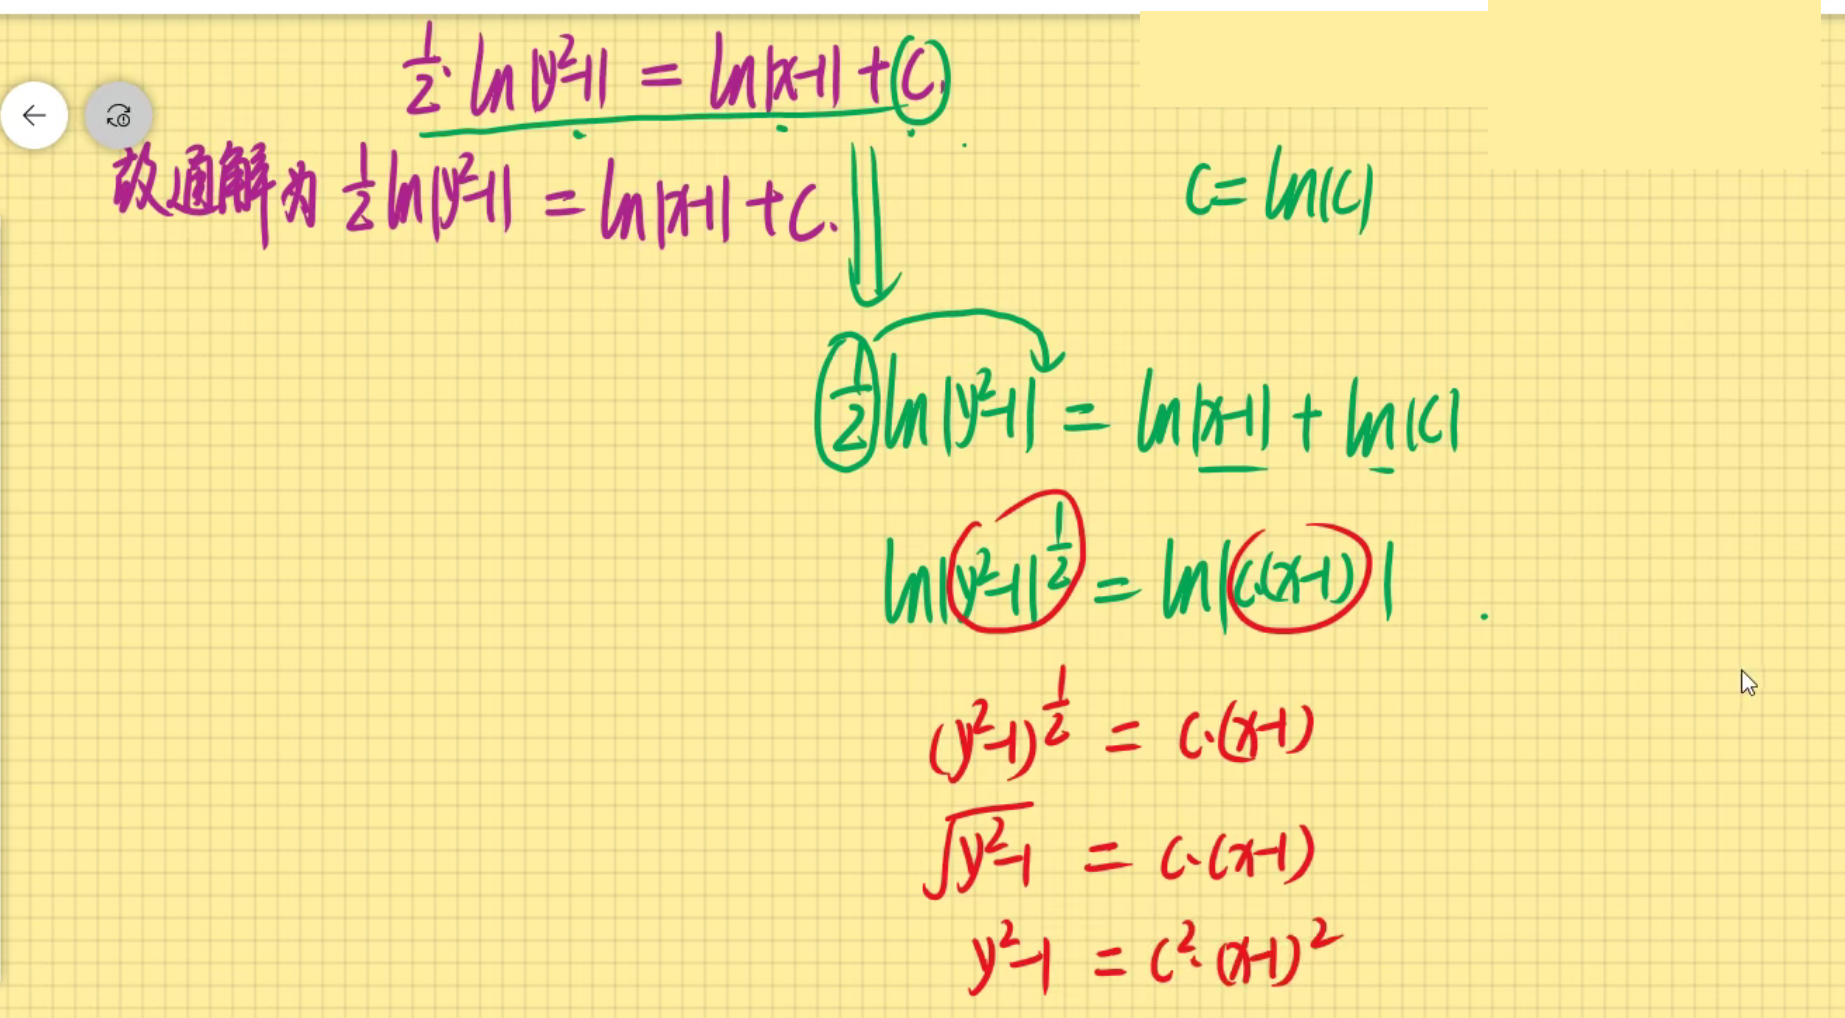 1/2 · ln|y²-1| = ln|x-1| + C.
故通解为 1/2 ln|y²-1| = ln|x-1| + C.
C = ln|C|
1/2 ln|y²-1| = ln|x-1| + ln|C|
ln|y²-1|^(1/2) = ln|C·(x-1)|
(y²-1)^(1/2) = C·(x-1)
√(y²-1) = C·(x-1)
y²-1 = C²·(x-1)²